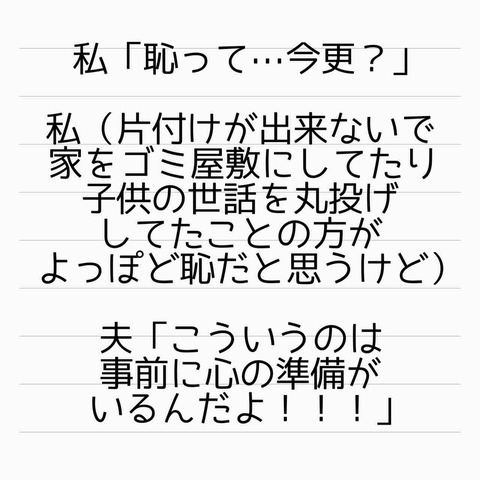 私「恥って…今更？」
私（片付けが出来ないで
家をゴミ屋敷にしてたり
子供の世話を丸投げ
してたことの方が
よっぽど恥だと思うけど）
夫「こういうのは
事前に心の準備が
いるんだよ！！！」